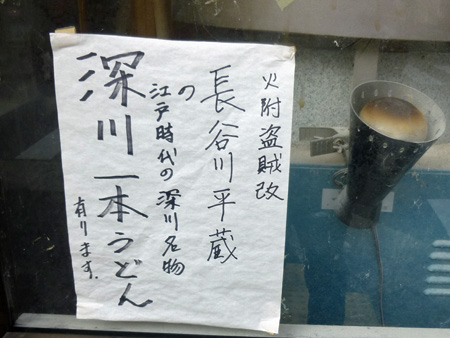 火附盗賊改
長谷川平蔵
の
江戸時代の深川名物
深川一本うどん
有ります。